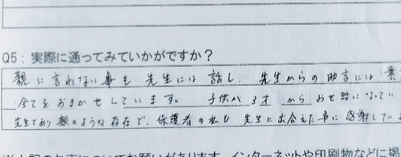 Q5：実際に通ってみていかがですか？
親に言わない事も先生には話し、先生からの助言には素
全てをおまかせしています。子供が3才からお世話になってい
先生であり親のような存在で、保護者の私も先生に出会えた事に感謝してい
インターネットや印刷物などに掲